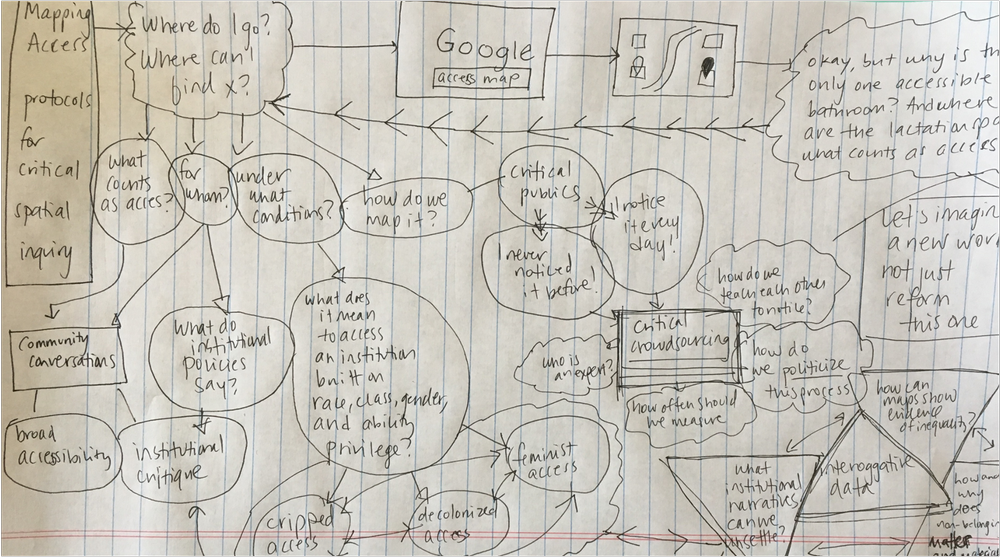 Mapping
Access
protocols
for
critical
spatial
inquiry
Where do I go?
Where can I
find x?
Google
access map
okay, but why is th
only one accessible
bathroom? And where
are the lactation spa
what counts as access
what
counts
as acces?
for
whom?
under
what
conditions?
how do we
map it?
critical
publics
I notice
it every
day!
I never
noticed
it before!
Let's imagin
a new wor
not just
reform
this one
how do we
teach each other
to notice?
Community
conversations
What do
institutional
policies
say?
what does
it mean
to access
an institution
built on
race, class, gender,
and ability
privilege?
critical
crowdsourcing
who is
an expert?
how do
we politicize
this process
how often should
we measure
how can
maps show
evidence
of inequality?
broad
accessibility
institutional
critique
feminist
access
cripped
access
decolonized
access
what
institutional
narratives
can we
unsettle?
interoggative
data
how and
why
does
non-belonging
matter
and material